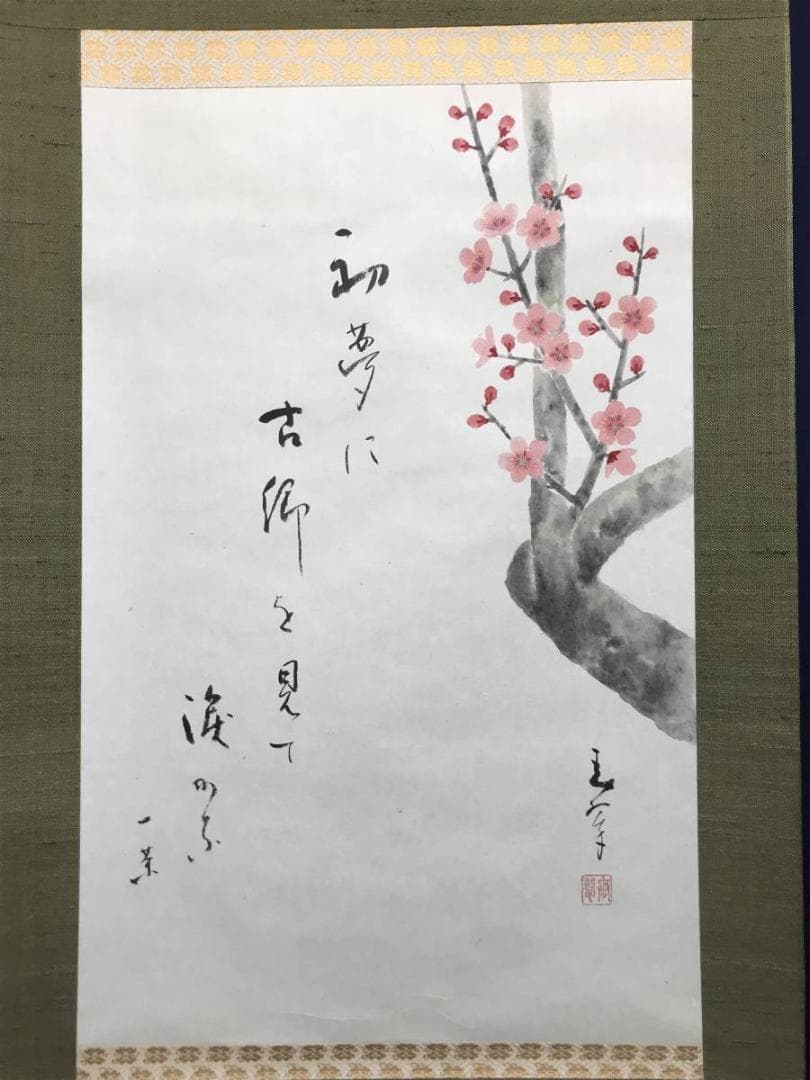 初夢に
古郷を見て
涙かな
一茶